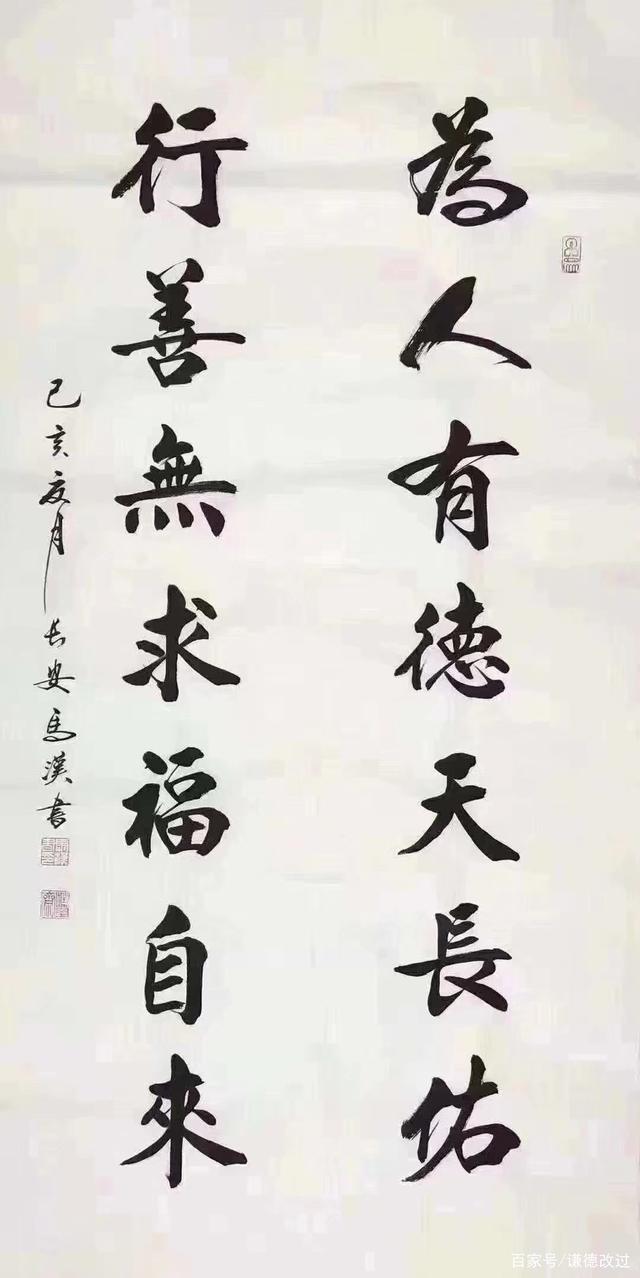 為人有德天長佑
行善無求福自來
己亥夏月长安馬漢書
百家号/谦德改过